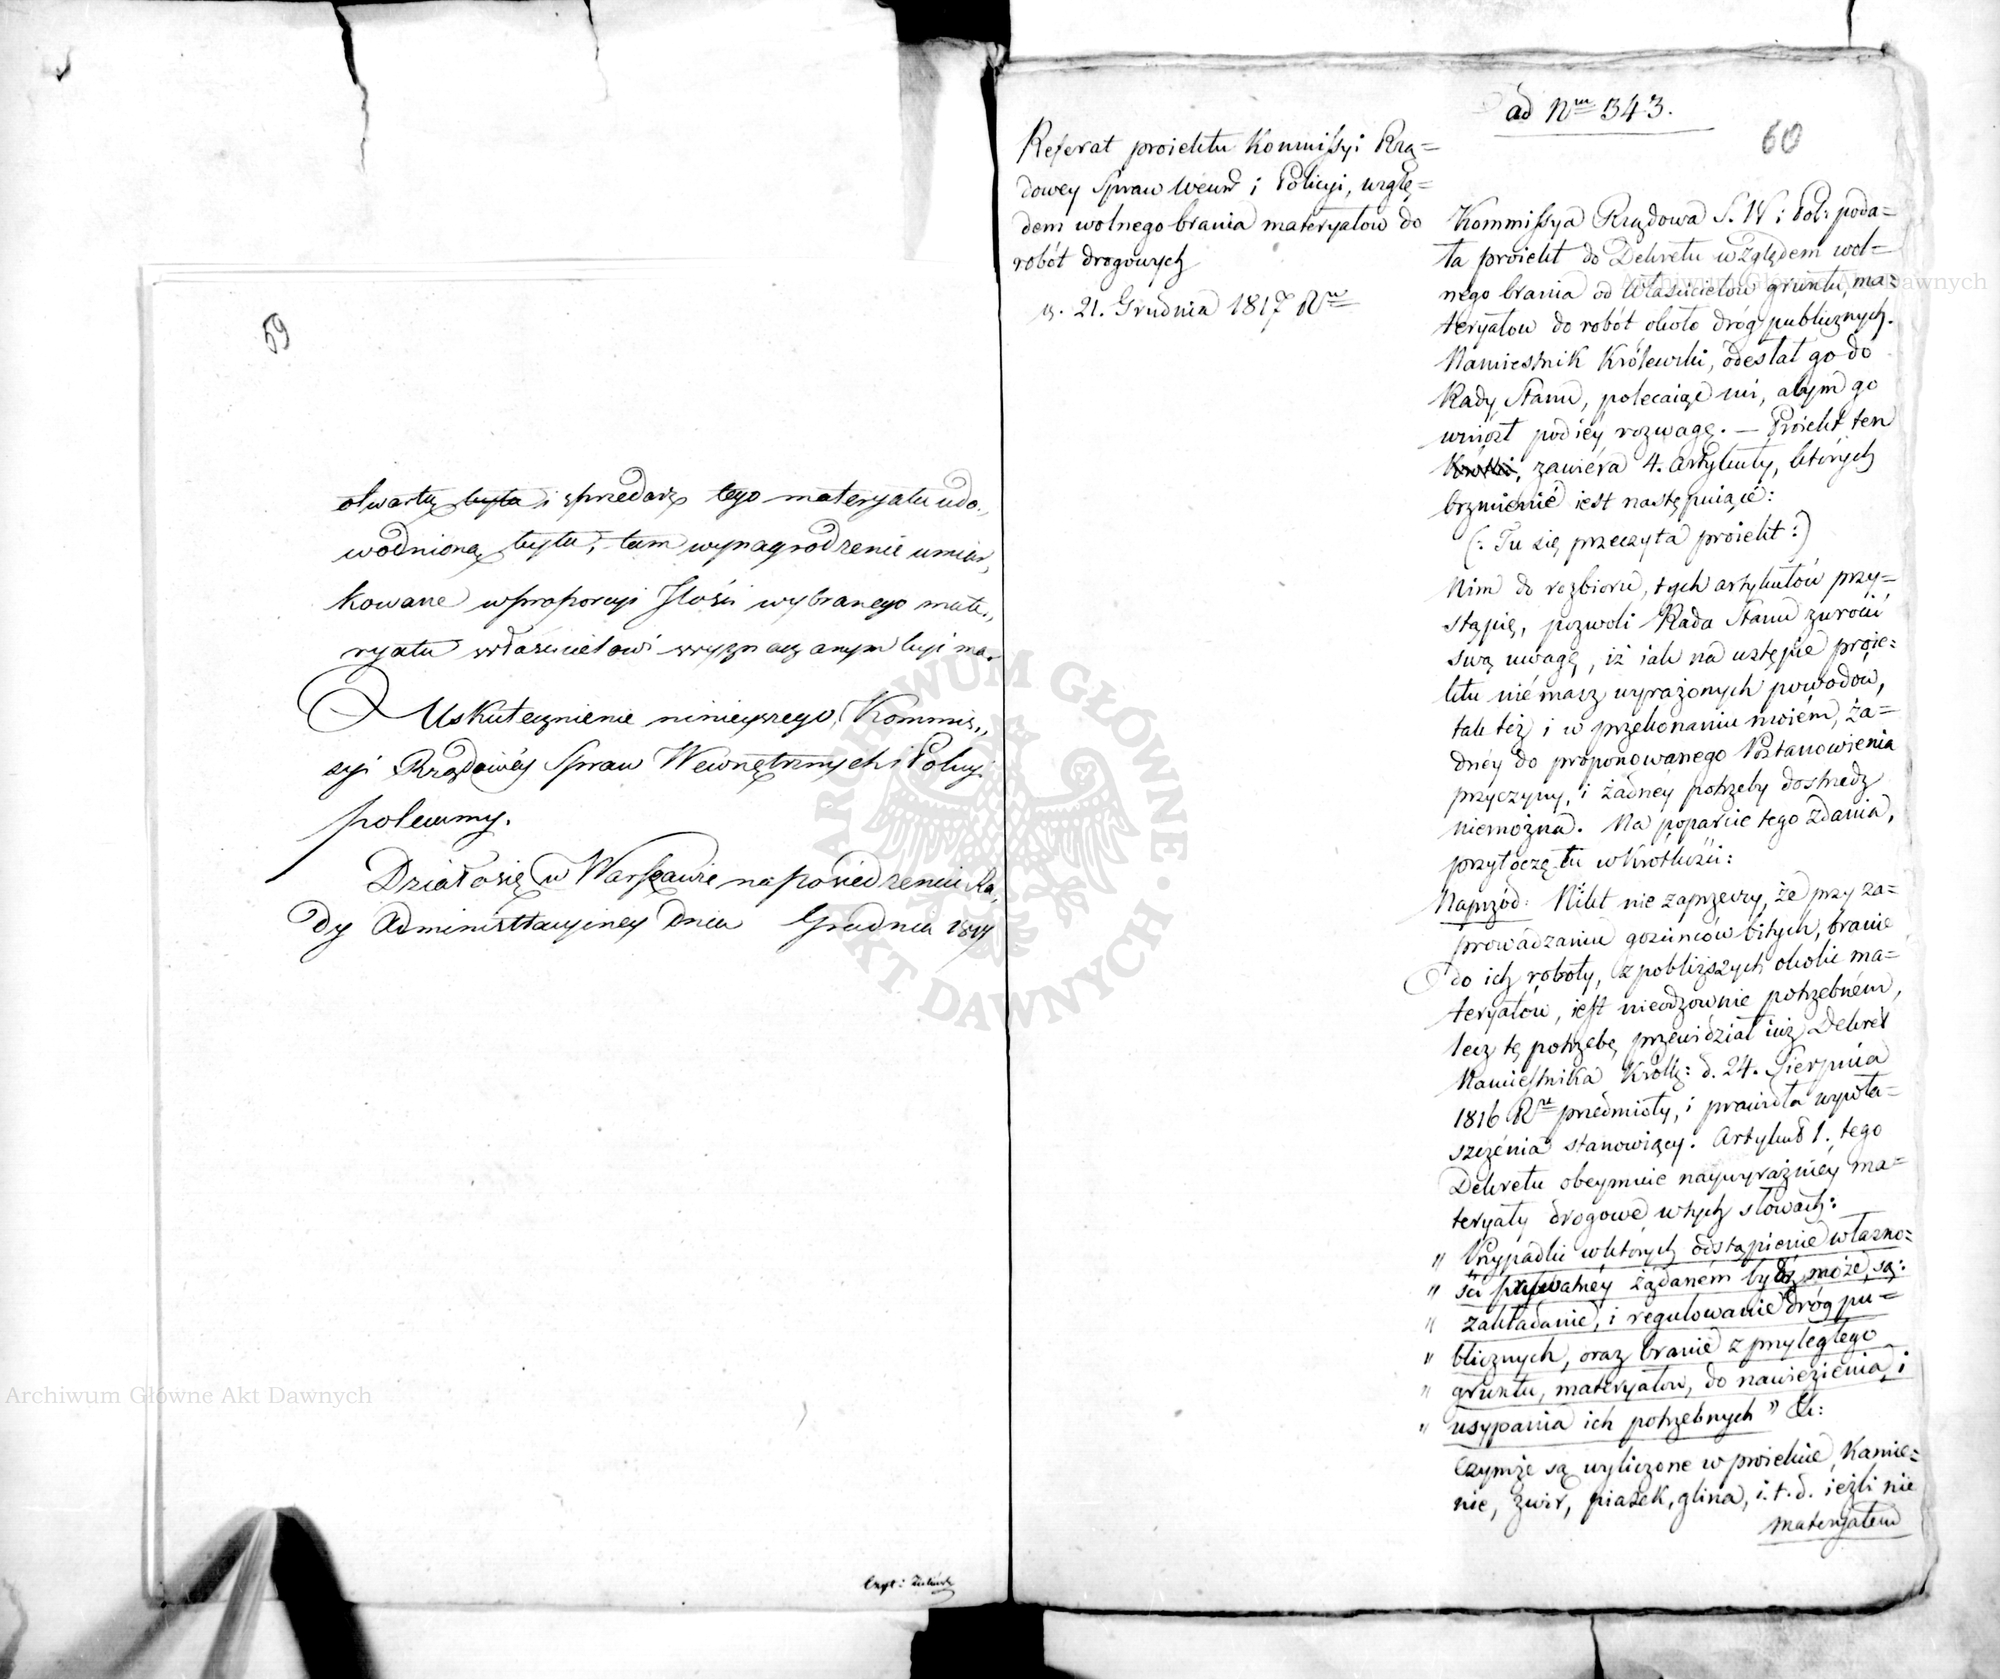 59
otwartą była i sprzedarz tego materyału udo„
wodnioną była, tam wynagrodzenie umiar„
kowane w proporcyi Ilości wybranego mate„
ryału właścicielowi wyznaczonym być ma.
Uskutecznienie ninieyszego, Kommis„
syi Rządowéy Spraw Wewnętrznych i Policyi
polecamy.
Działo się w Warszawie na posiedzeniu Ra„
dy Administracyiney Dnia Grudnia 1817
ad Nrm 343.
60
Referat proiektu Kommissyi Rzą=
dowey Spraw Wewn i Policyi, wzglę=
dem wolnego brania materyałow do
robót drogowych
21. Grudnia 1817 Ru
Kommissya Rządowa S. W: i Pol: poda=
ła proiekt do Dekretu względem wol=
nego brania od Właścicielow gruntu, ma=
teryałow do robót około dróg publicznych.
Namiestnik Królewski, odesłał go do
Rady Stanu, polecaiąc mi, abym go
wniósł pod iéy rozwagę. — Proiekt ten
Krótki, zawiéra 4. artykuły, których
brzmienié iest następuiącé:
(: Tu się przeczyta proiekt :)
Nim do rozbioru, tych artykułów przy=
stąpię, pozwoli Rada Stanu zwrócić
swą uwagę, iż iak na wstępie proie=
ktu nié masz wyrażonych powodów,
tak téż i w przekonaniu moiém, ża=
dnéy do proponowanego Postanowienia
przyczyny, i żadnéy potrzeby dostrzedz
niemożna. Na poparcie tego zdania,
przytoczę tu w krótkości:
Naprzód: Nikt nie zaprzeczy, że przy za=
prowadzaniu gościńców bitych, branie
do ich roboty, z pobliższych okolic ma=
teryałów, iest nieodzownie potrzebném,
lecz tę potrzebę przewidział iuż Dekret
Namiestnika Krolle: d. 24. Sierpnia
1816 Ru przedmioty, i prawidła wywła=
szczénia stanowiący. Artykuł 1. tego
Dekretu obeymuie naywyraźniéy ma=
teryały drogowe w tych słowach:
„ Przypadki w których odstąpienie własno=
„ ści prywatnéy żądaném bydź może, są:
„ zakładanie, i regulowanie dróg pu=
„ blicznych, oraz branie z przyległego
„ gruntu, materyałow, do nawiezienia, i
„ usypania ich potrzebnych " &:
Czymże są wyliczone w proiekcie Kamie=
nie, żwir, piasek, glina, i. t. d. ieżli nie
materyałem